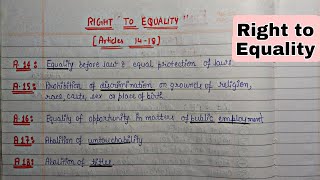 RIGHT "TO EQUALITY"
[Articles 14-18]
Right to
Equality
A.14: Equality before law & equal protection of laws
A.15: Prohibition of discrimination on grounds of religion,
race, caste, sex or place of birth
A.16: Equality of opportunity in matters of public employment
A.17: Abolition of untouchability
A.18: Abolition of titles